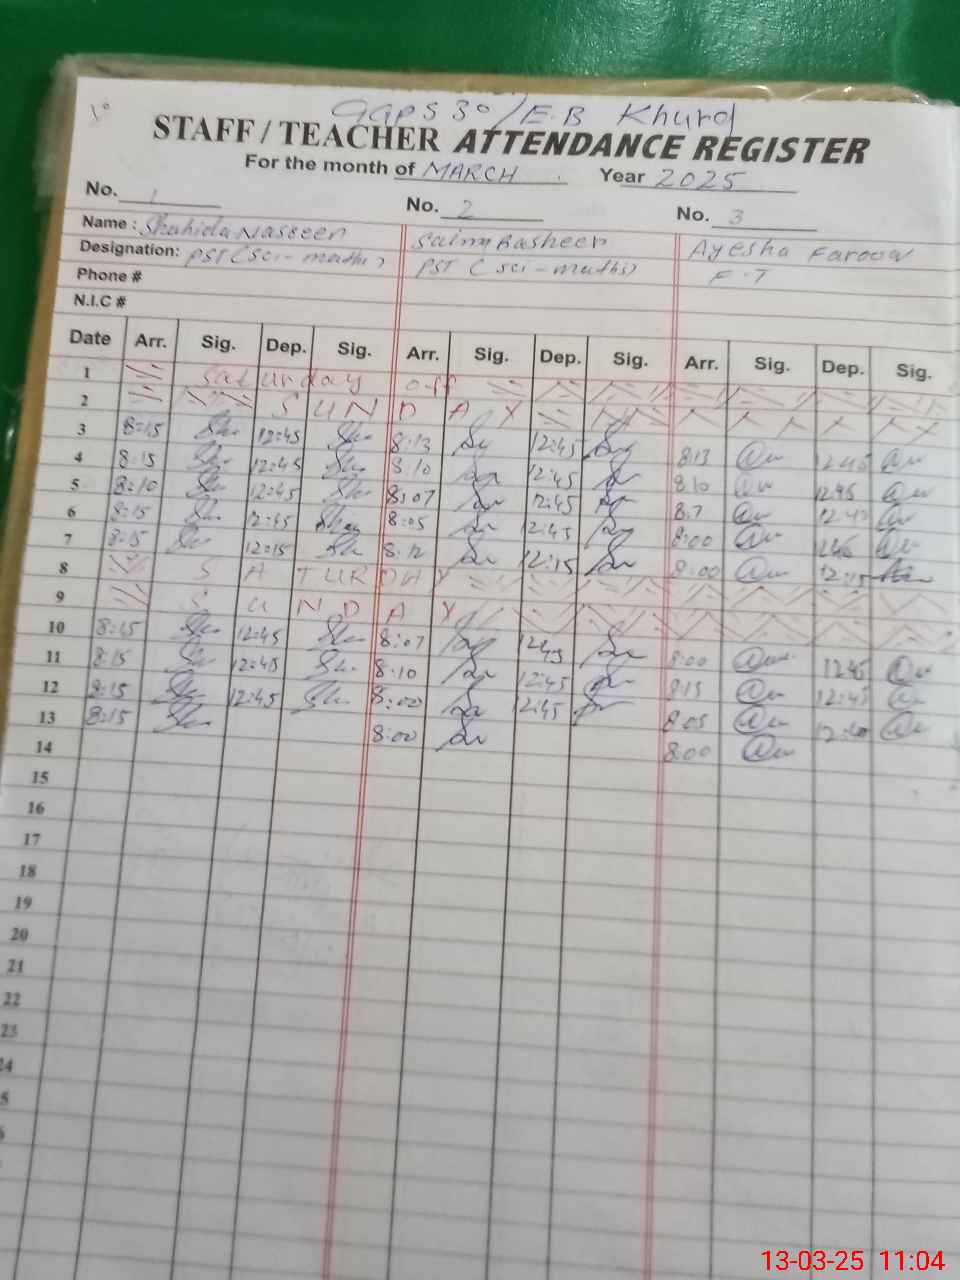 GGPS 30/E.B Khurd
STAFF / TEACHER ATTENDANCE REGISTER
For the month of MARCH Year 2025
No. 1 No. 2 No. 3
Name : Shahida Nasreen Saima Basheer Ayesha Farooq
Designation: PST (sci-maths) PST (sci-maths) F.T
Phone #
N.I.C #
Date Arr. Sig. Dep. Sig. Arr. Sig. Dep. Sig. Arr. Sig. Dep. Sig.
1 Saturday off
2 SUNDAY
3 8:15 12:45 8:13 12:45 8:13 12:45
4 8:15 12:45 8:10 12:45 8:10 12:45
5 8:10 12:45 8:07 12:45 8:7
6 8:15 12:45 8:05 12:45 8:00
7 8:15 12:15 8:12 12:15 8:00 12:15
8 SATURDAY
9 SUNDAY
10 8:15 12:45 8:07 12:45 8:00 12:45
11 8:15 12:45 8:10 12:45 8:15 12:45
12 8:15 12:45 8:00 12:45 8:05
13 8:15 8:00 8:00
14
15
16
17
18
19
20
21
22
23
24
5
13-03-25 11:04